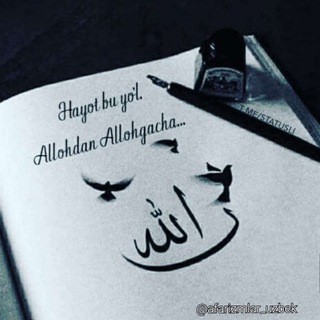 Hayot bu yo'l.
Allohdan Allohgacha...
T.ME/STATUSLI
الله
@afarizmlar_uzbek